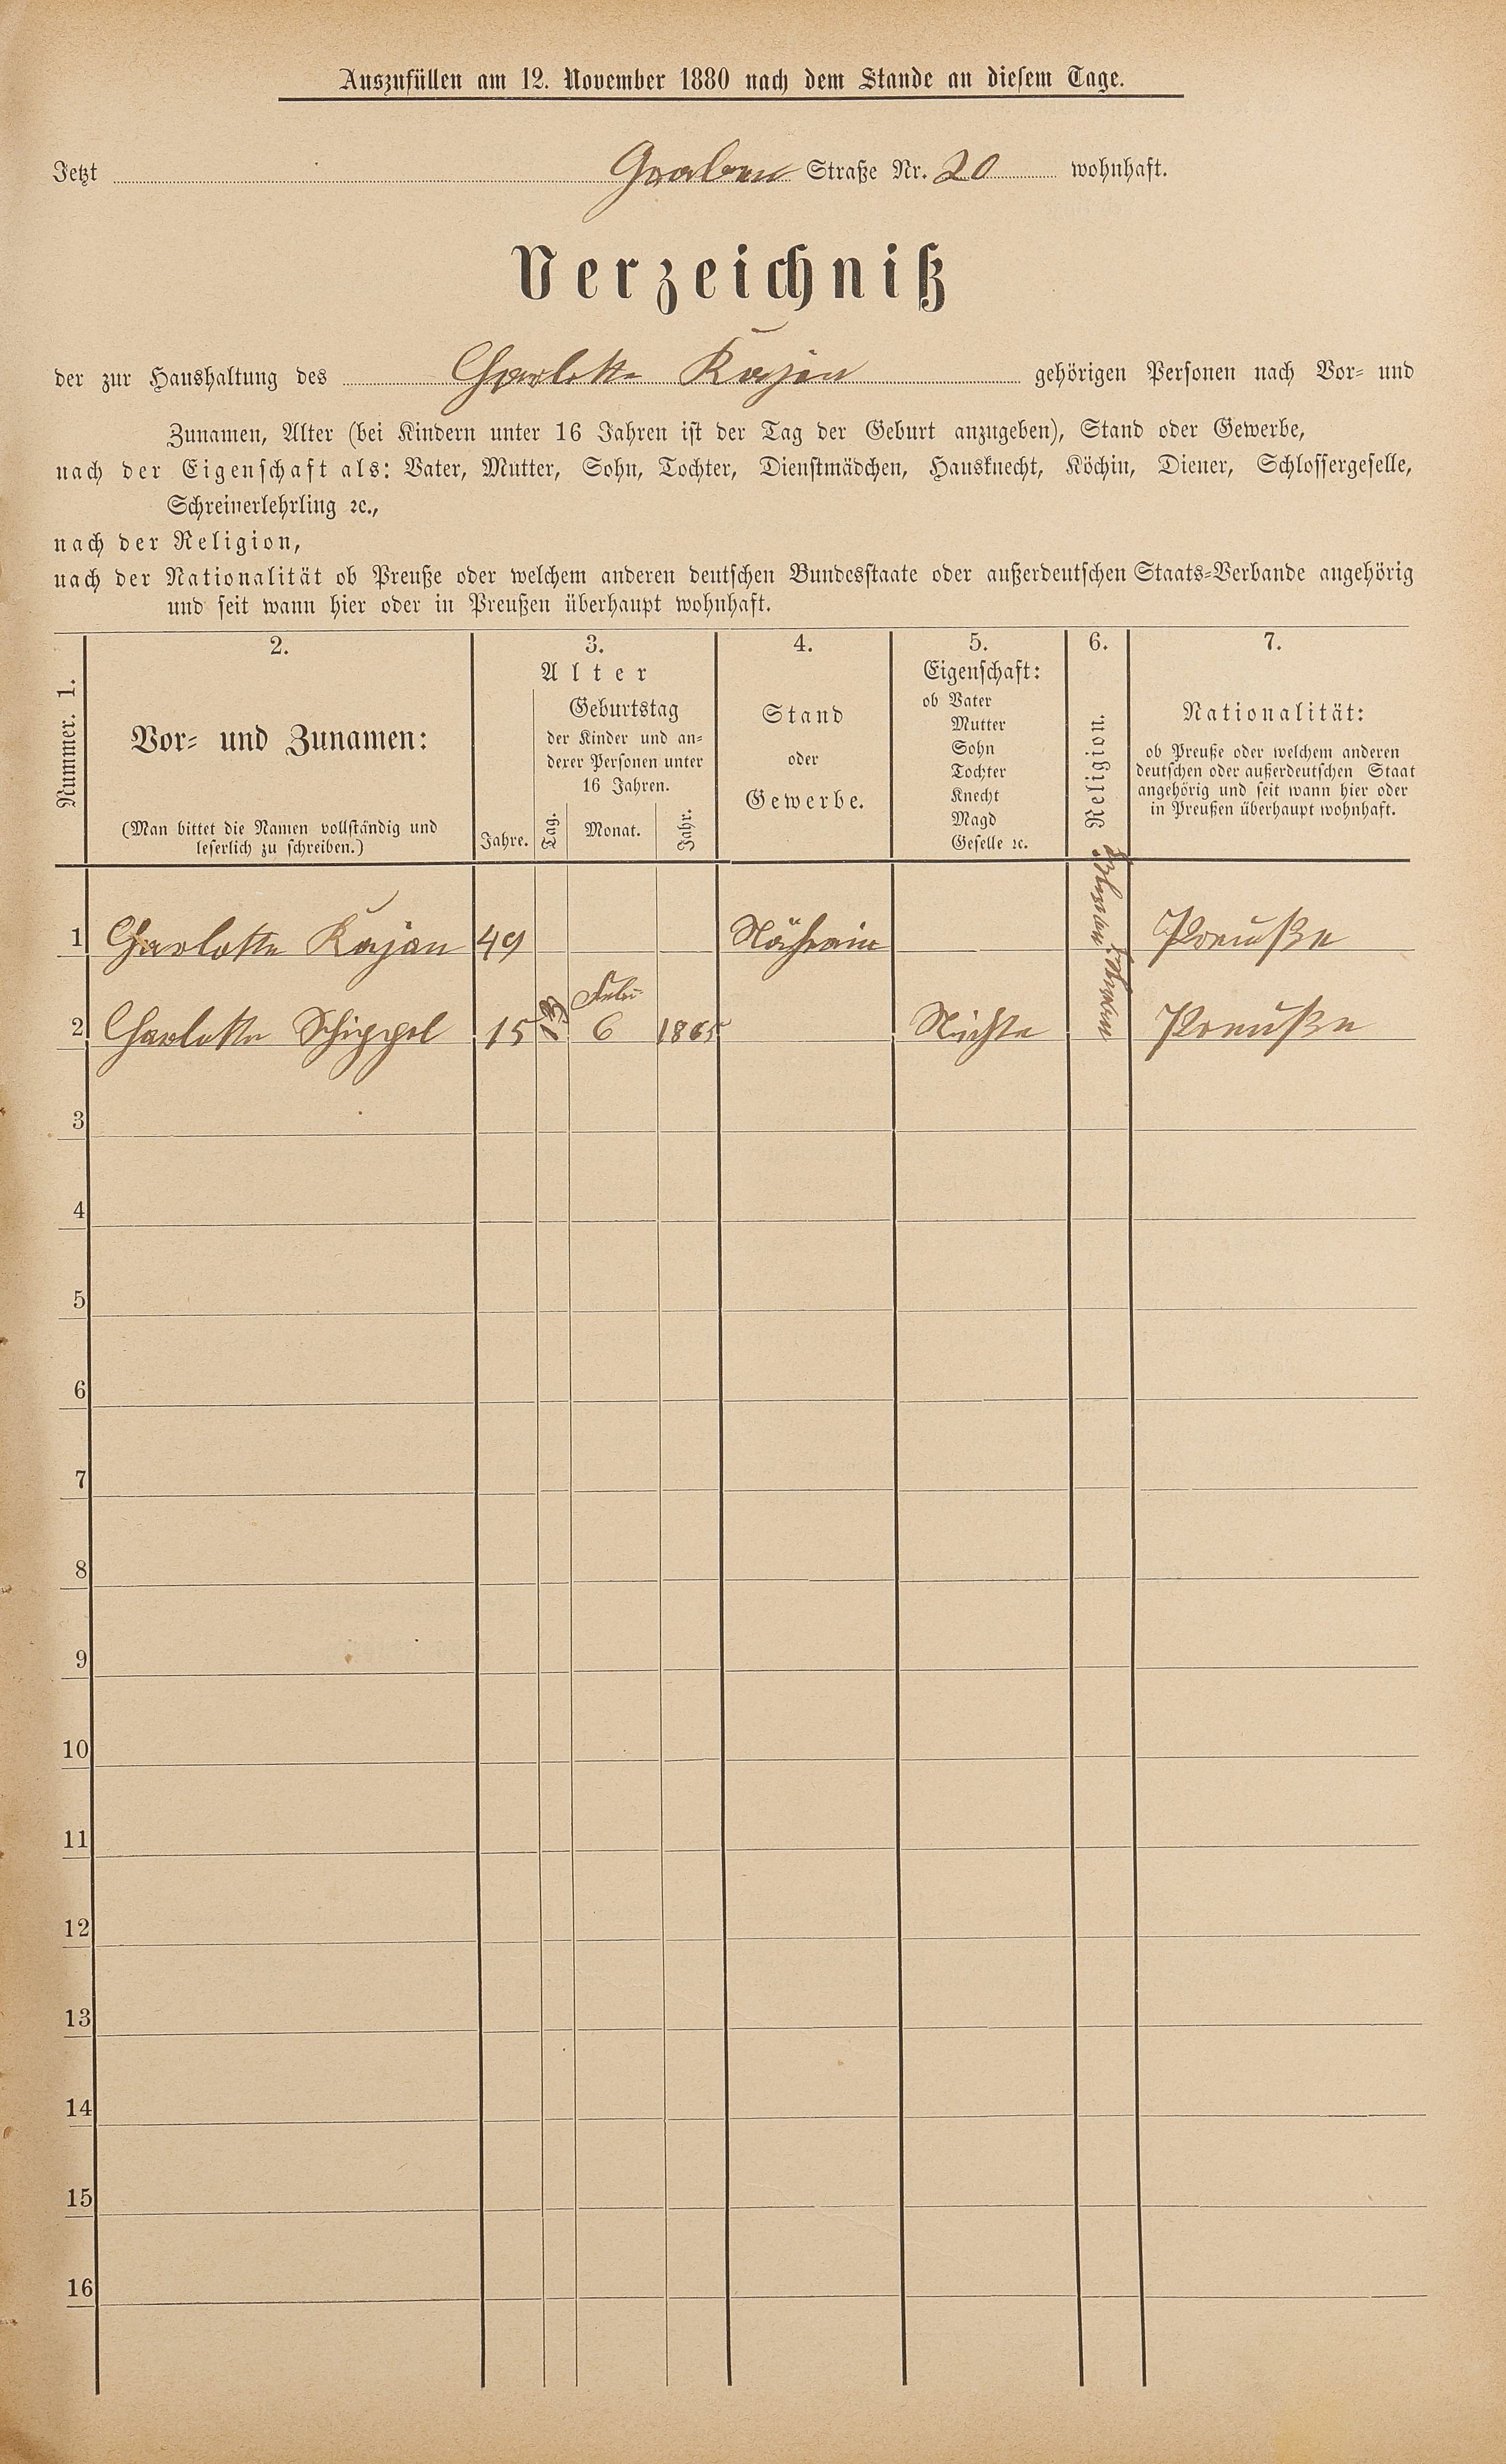 Auszufüllen am 12. November 1880 nach dem Stande an diesem Tage.
Jetzt Graben Straße Nr. 20 wohnhaft.
Verzeichniß
der zur Haushaltung des Charlotte Kajan gehörigen Personen nach Vor- und
Zunamen, Alter (bei Kindern unter 16 Jahren ist der Tag der Geburt anzugeben), Stand oder Gewerbe,
nach der Eigenschaft als: Vater, Mutter, Sohn, Tochter, Dienstmädchen, Hausknecht, Köchin, Diener, Schlossergeselle,
Schreinerlehrling ꝛc.,
nach der Religion,
nach der Nationalität ob Preuße oder welchem anderen deutschen Bundesstaate oder außerdeutschen Staats-Verbande angehörig
und seit wann hier oder in Preußen überhaupt wohnhaft.
Nummer. 1.
2.
Vor- und Zunamen:
(Man bittet die Namen vollständig und
leserlich zu schreiben.)
3.
Alter
Jahre.
Geburtstag
der Kinder und an-
derer Personen unter
16 Jahren.
Tag.
Monat.
Jahr.
4.
Stand
oder
Gewerbe.
5.
Eigenschaft:
ob Vater
Mutter
Sohn
Tochter
Knecht
Magd
Geselle ꝛc.
6.
Religion.
7.
Nationalität:
ob Preuße oder welchem anderen
deutschen oder außerdeutschen Staat
angehörig und seit wann hier oder
in Preußen überhaupt wohnhaft.
1 Charlotte Kajan 49 Nähterin Preuße
2 Charlotte Schippel 15 13 Febr 6 1865 Nichte Preuße
3
4
5
6
7
8
9
10
11
12
13
14
15
16